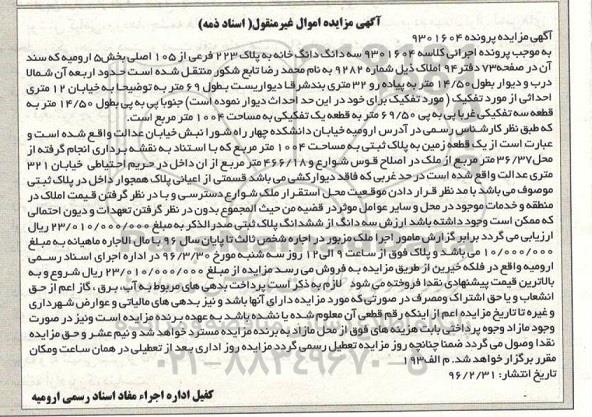 آگهی مزایده اموال غیرمنقول( اسناد ذمه)
آگهی مزایده پرونده ۹۳۰۱۶۰۴
به موجب پرونده اجرائی کلاسه ۹۳۰۱۶۰۴ سه دانگ دانگ خانه به پلاک ۲۲۳ فرعی از ۱۰۵ اصلی بخش۵ ارومیه که سند
آن در صفحه۷۳ دفتر۹۴ املاک ذیل شماره ۹۲۸۲ به نام محمد رضا تابع شکور منتقل شده است حدود اربعه آن شمالا
درب و دیوار بطول ۱۴/۵۰ متر به پیاده رو ۳۲ متری بندشرقا دیواریست بطول ۶۹ متر به توضیحا به خیابان ۱۲ متری
احداثی از مورد تفکیک ( مورد تفکیک برای خود در این حد احداث دیوار نموده است) جنوبا پی به پی بطول ۱۴/۵۰ متر به
قطعه سه تفکیکی غربا پی به پی ۶۹/۵۰ متر به قطعه یک تفکیکی به مساحت ۱۰۰۴ متر مربع است.
که طبق نظر کارشناس رسمی در آدرس ارومیه خیابان دانشکده چهار راه شورا نبش خیابان عدالت واقع شده است و
عبارت است از یک قطعه زمین به پلاک ثبتی به مساحت ۱۰۰۴ متر مربع که با استناد به نقشه برداری انجام گرفته از
محل ۳۶/۳۷ متر مربع از ملک در اصلاح قوس شوارع و ۴۶۶/۱۸ متر مربع از ان داخل در حریم احتیاطی خیابان ۳۲۱
متری عدالت واقع شده است در حد غربی که فاقد دیوارکشی می باشد قسمتی از اعیانی پلاک همجوار داخل در پلاک ثبتی
موصوف می باشد با مد نظر قرار دادن موقعیت محل استقرار ملک شوارع دسترسی و با در نظر گرفتن قیمت املاک در
منطقه و خدمات موجود در محل و سایر عوامل موثر در قضیه من حیث المجموع بدون در نظر گرفتن تعهدات و دیون احتمالی
که ممکن است وجود داشته باشد ارزش سه دانگ از ششدانگ پلاک ثبتی صدر الذکر به مبلغ ۲۳/۰۱۰/۰۰۰/۰۰۰ ریال
ارزیابی می گردد برابر گزارش مامور اجرا ملک مزبور در اجاره شخص ثالث تا پایان سال ۹۶ با مال الاجاره ماهیانه به مبلغ
۱۰/۰۰۰/۰۰۰ می باشد و پلاک فوق از ساعت ۹ الی ۱۲ روز سه شنبه مورخ ۹۶/۳/۳۰ در اداره اجرای اسناد رسمی
ارومیه واقع در فلکه خیرین از طریق مزایده به فروش می رسد مزایده از مبلغ ۲۳/۰۱۰/۰۰۰/۰۰۰ ریال شروع و به
بالاترین قیمت پیشنهادی نقدا فروخته می شود لازم به ذکر است پرداخت بدهی های مربوط به آب، برق، گاز اعم از حق
انشعاب و یا حق اشتراک ومصرف در صورتی که مورد مزایده دارای آنها باشد و نیز بدهی های مالیاتی و عوارض شهرداری
و غیره تا تاریخ مزایده اعم از اینکه رقم قطعی آن معلوم شده یا نشده باشد به عهده برنده مزایده است ونیز در صورت
وجود مازاد وجوه پرداختی بابت هزینه های فوق از محل مازاد به برنده مزایده مسترد خواهد شد و نیم عشر و حق مزایده
نقدا وصول می گردد ضمنا چنانچه روز مزایده تعطیل رسمی گردد مزایده روز اداری بعد از تعطیلی در همان ساعت ومکان
مقرر برگزار خواهد شد. م الف۱۹۳
تاریخ انتشار: ۹۶/۲/۳۱
کفیل اداره اجراء مفاد اسناد رسمی ارومیه
۰۲۱-۸۸۳۴۹۶۷۰